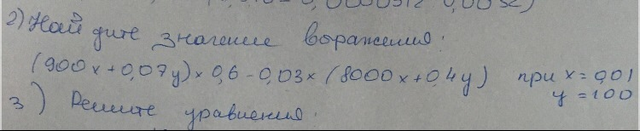 2) Найдите значение выражения.
(900x + 0,07y) × 0,6 - 0,03 × (8000x + 0,4y) при x = 0,01
y = 100
3) Решите уравнения.